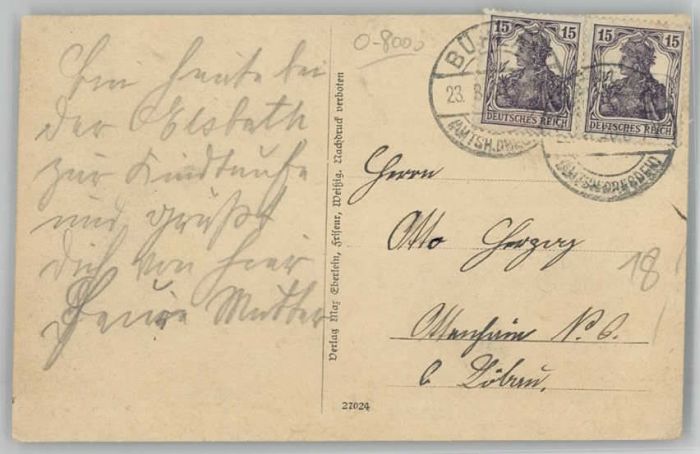 Bin heute bei
der Elsbeth
zur Kindtaufe
und grüßt
dich von hier
Deine Mutter
Verlag Max Eberlein, Friseur, Weißig. Nachdruck verboten
27024
0-8000
15 15
DEUTSCHES REICH
15 15
DEUTSCHES REICH
23. 8
(AMTSH. DRESDEN)
Herrn
Otto Herzog
Ottenhain N. 6.
b Löbau.
18